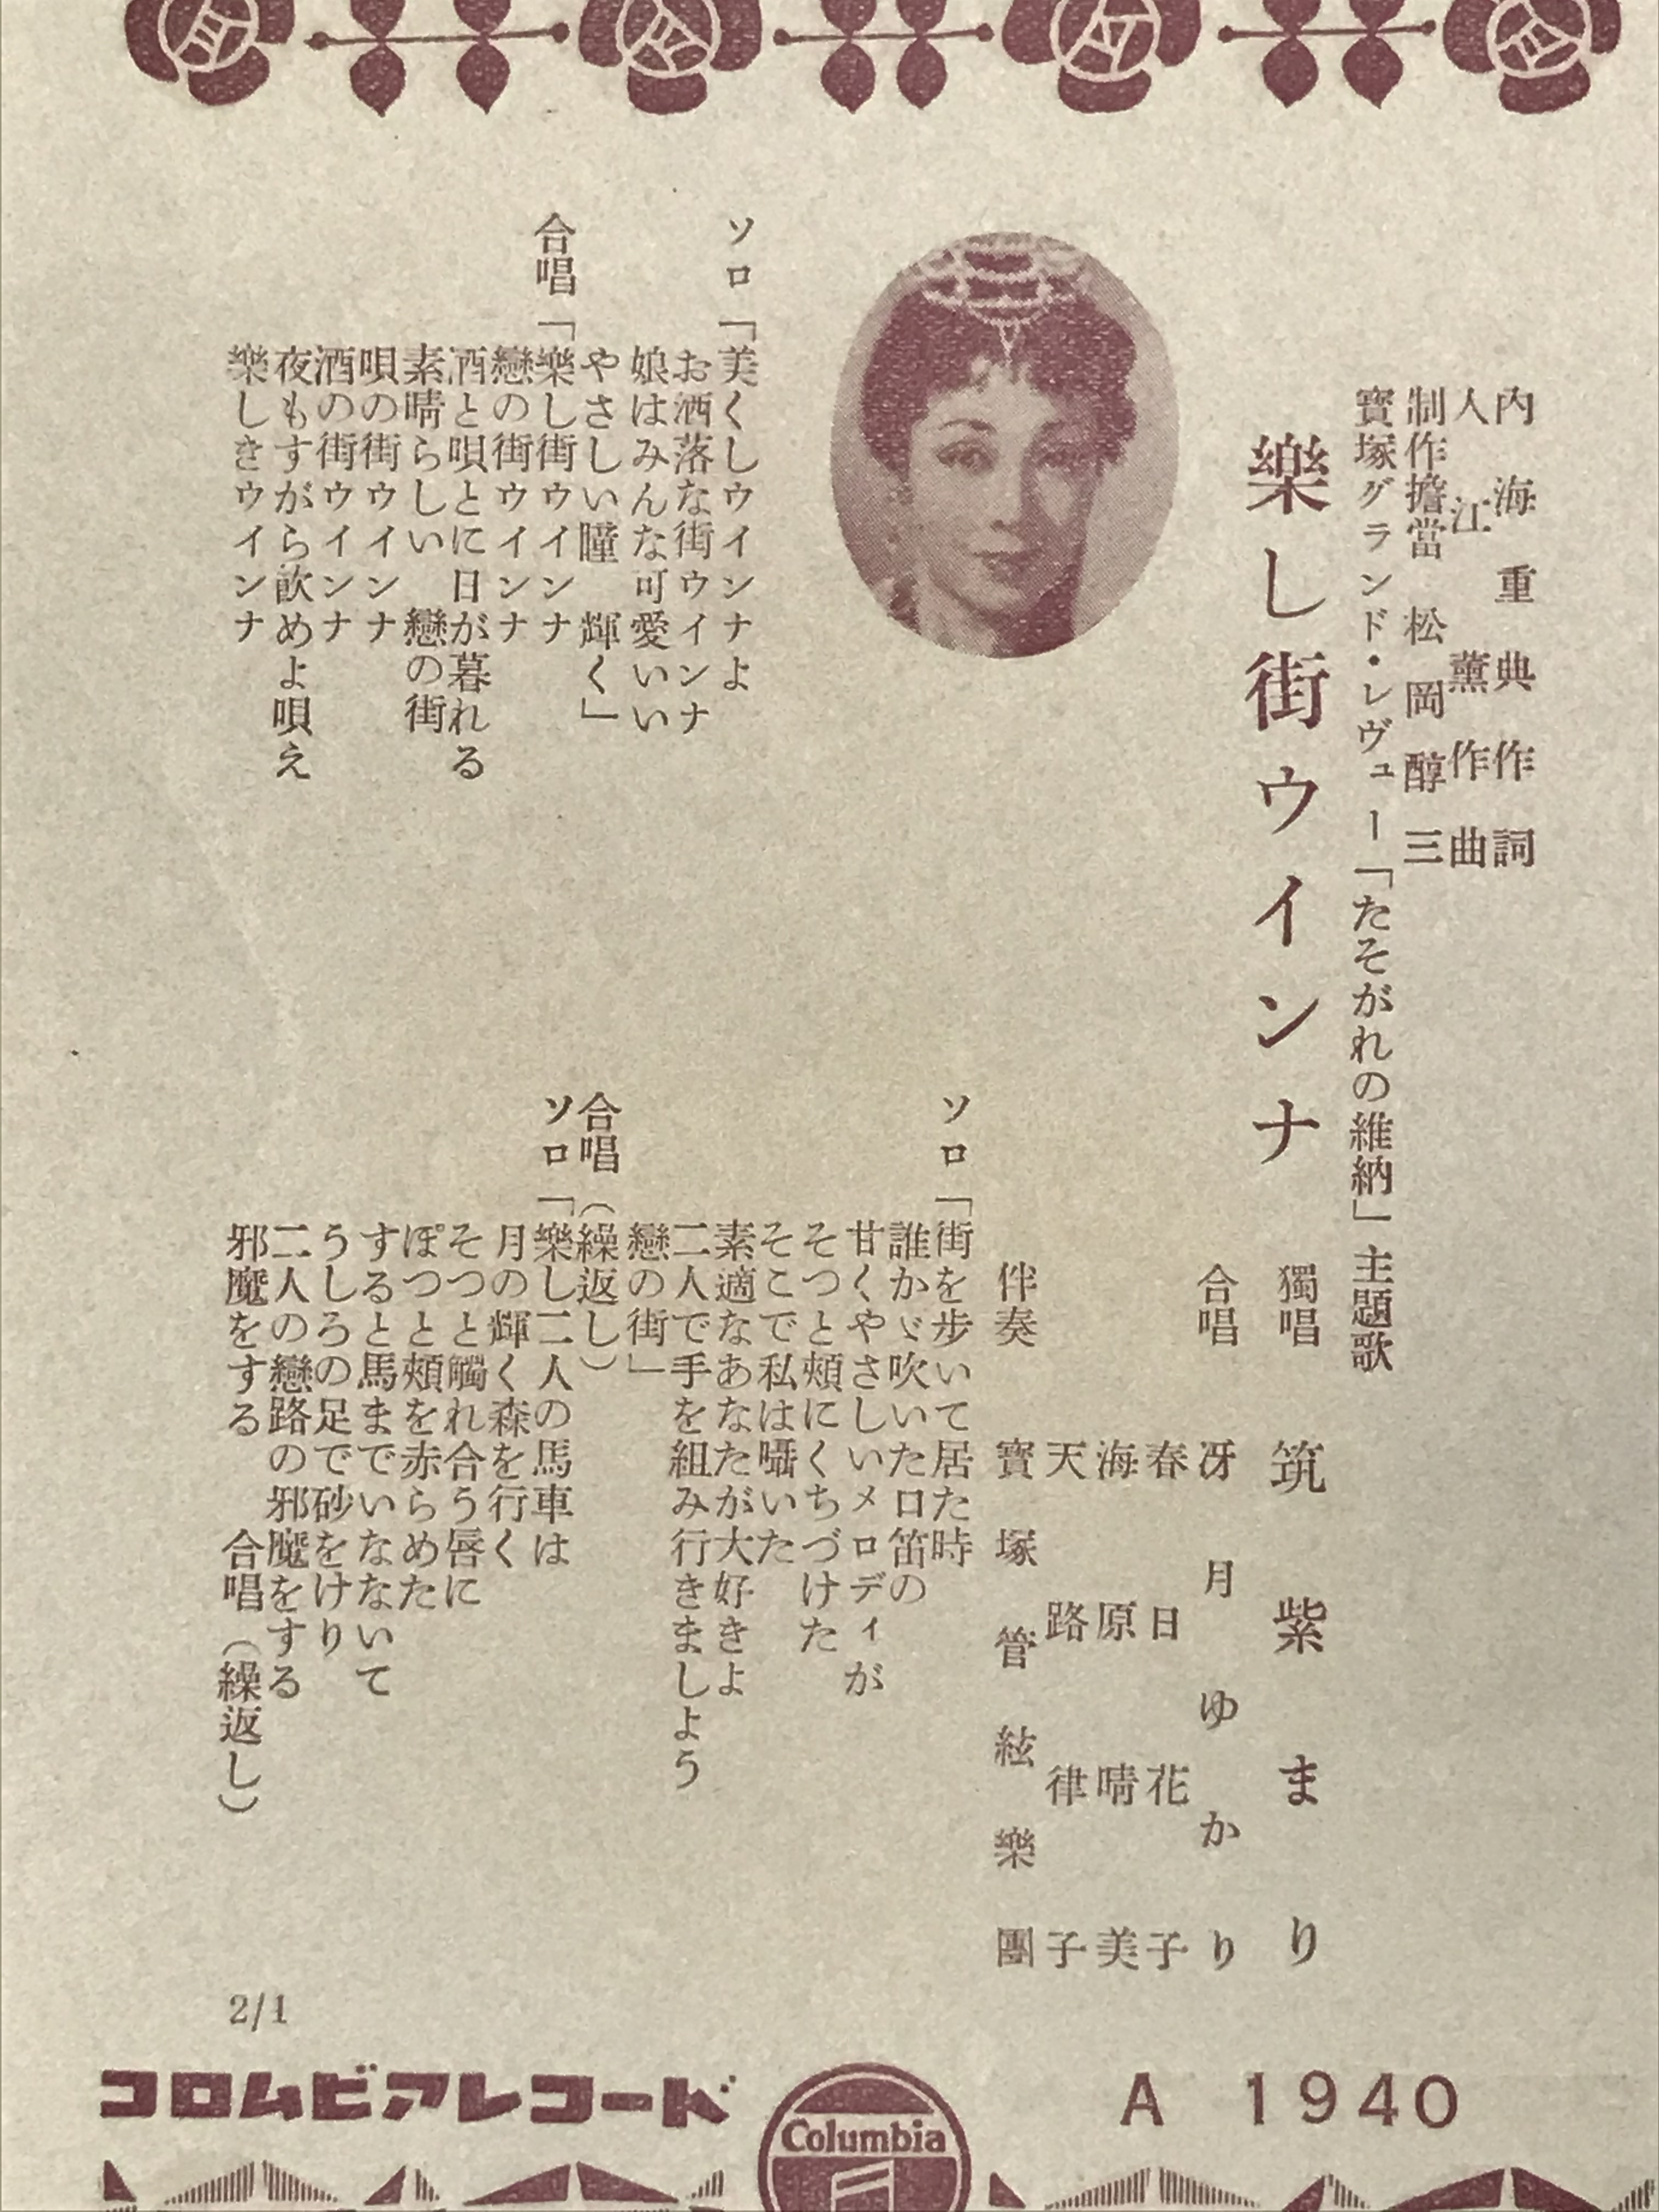 内海重典作詞
入江薫作曲
制作擔當 松岡醇三
寶塚グランド・レヴュー「たそがれの維納」主題歌
樂し街ウインナ
獨唱 筑紫まり
合唱 冴月ゆかり
春日花子
海原晴美
天路律子
伴奏 寶塚管絃樂團
ソロ「美くしウインナよ
お洒落な街ウインナ
娘はみんな可愛いい
やさしい瞳 輝く」
合唱「樂し街ウインナ
戀の街ウインナ
酒と唄とに日が暮れる
素晴らしい 戀の街
唄の街ウインナ
酒の街ウインナ
夜もすがら飮めよ唄え
樂しきウインナ
ソロ「街を歩いて居た時
誰かゞ吹いた口笛の
甘くやさしいメロディが
そつと頰にくちづけた
そこで私は囁いた
素適なあなたが大好きよ
二人で手を組み行きましよう
戀の街」
合唱(繰返し)
ソロ「樂し二人の馬車は
月の輝く森を行く
そつと觸れ合う唇に
ぽつと頰を赤らめた
すると馬までいなないて
うしろの足で砂をけり
二人の戀路の邪魔をする
邪魔をする 合唱(繰返し)
2/1
コロムビアレコード
Columbia
A 1940